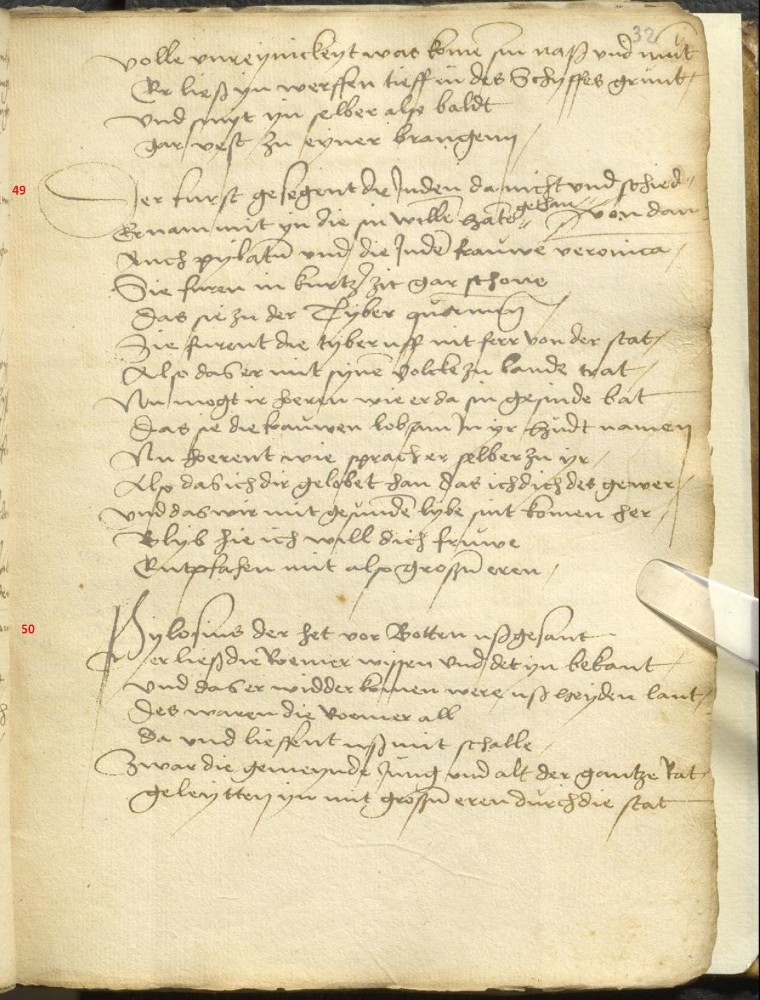 32
volle vnreynickeyt was kome sin naß vnd
Er ließ yn werffen tieff in des Schyffes grunt
vnd smyt yn selber also baldt
gar vest zu eyner brangenn
49
Der furst gesegent die Juden da nicht vnd schied
Er nam mit yn die sin wille hatt gethan von dan
Auch pylatū vnd die Judē frauwe veronica
Sie furen in kurtz zit gar schone
Das sie zu der Tyber quamen
Sie furent die tyber uff nit ferr von der stat
Also das er mit synē volcke zu lande trat
Nu mogt ir horen wie er da sin gesinde bat
Das sie die frauwen lobsam In yr hudt namen
Nu horent wie sprach er selber zu yr
Also das ich dir gelobet han das ich dich des gewer
vnd das wir mit gesundē lybe sint komen her
Blyb hie ich will dich fruwe
Entpfahen mit also großn eren
50
Vylosinus der het vor Botten ußgesant
er ließ die Roemer wissen vnd det yn bekant
vnd das er widder komen were uß heyden lant
Des waren die Roemer all
da vnd lieffent uß mit schalle
Zwar die gemeynde Jung vnd alt der gantze Rat
geleytten yn mit großn eren durch die stat